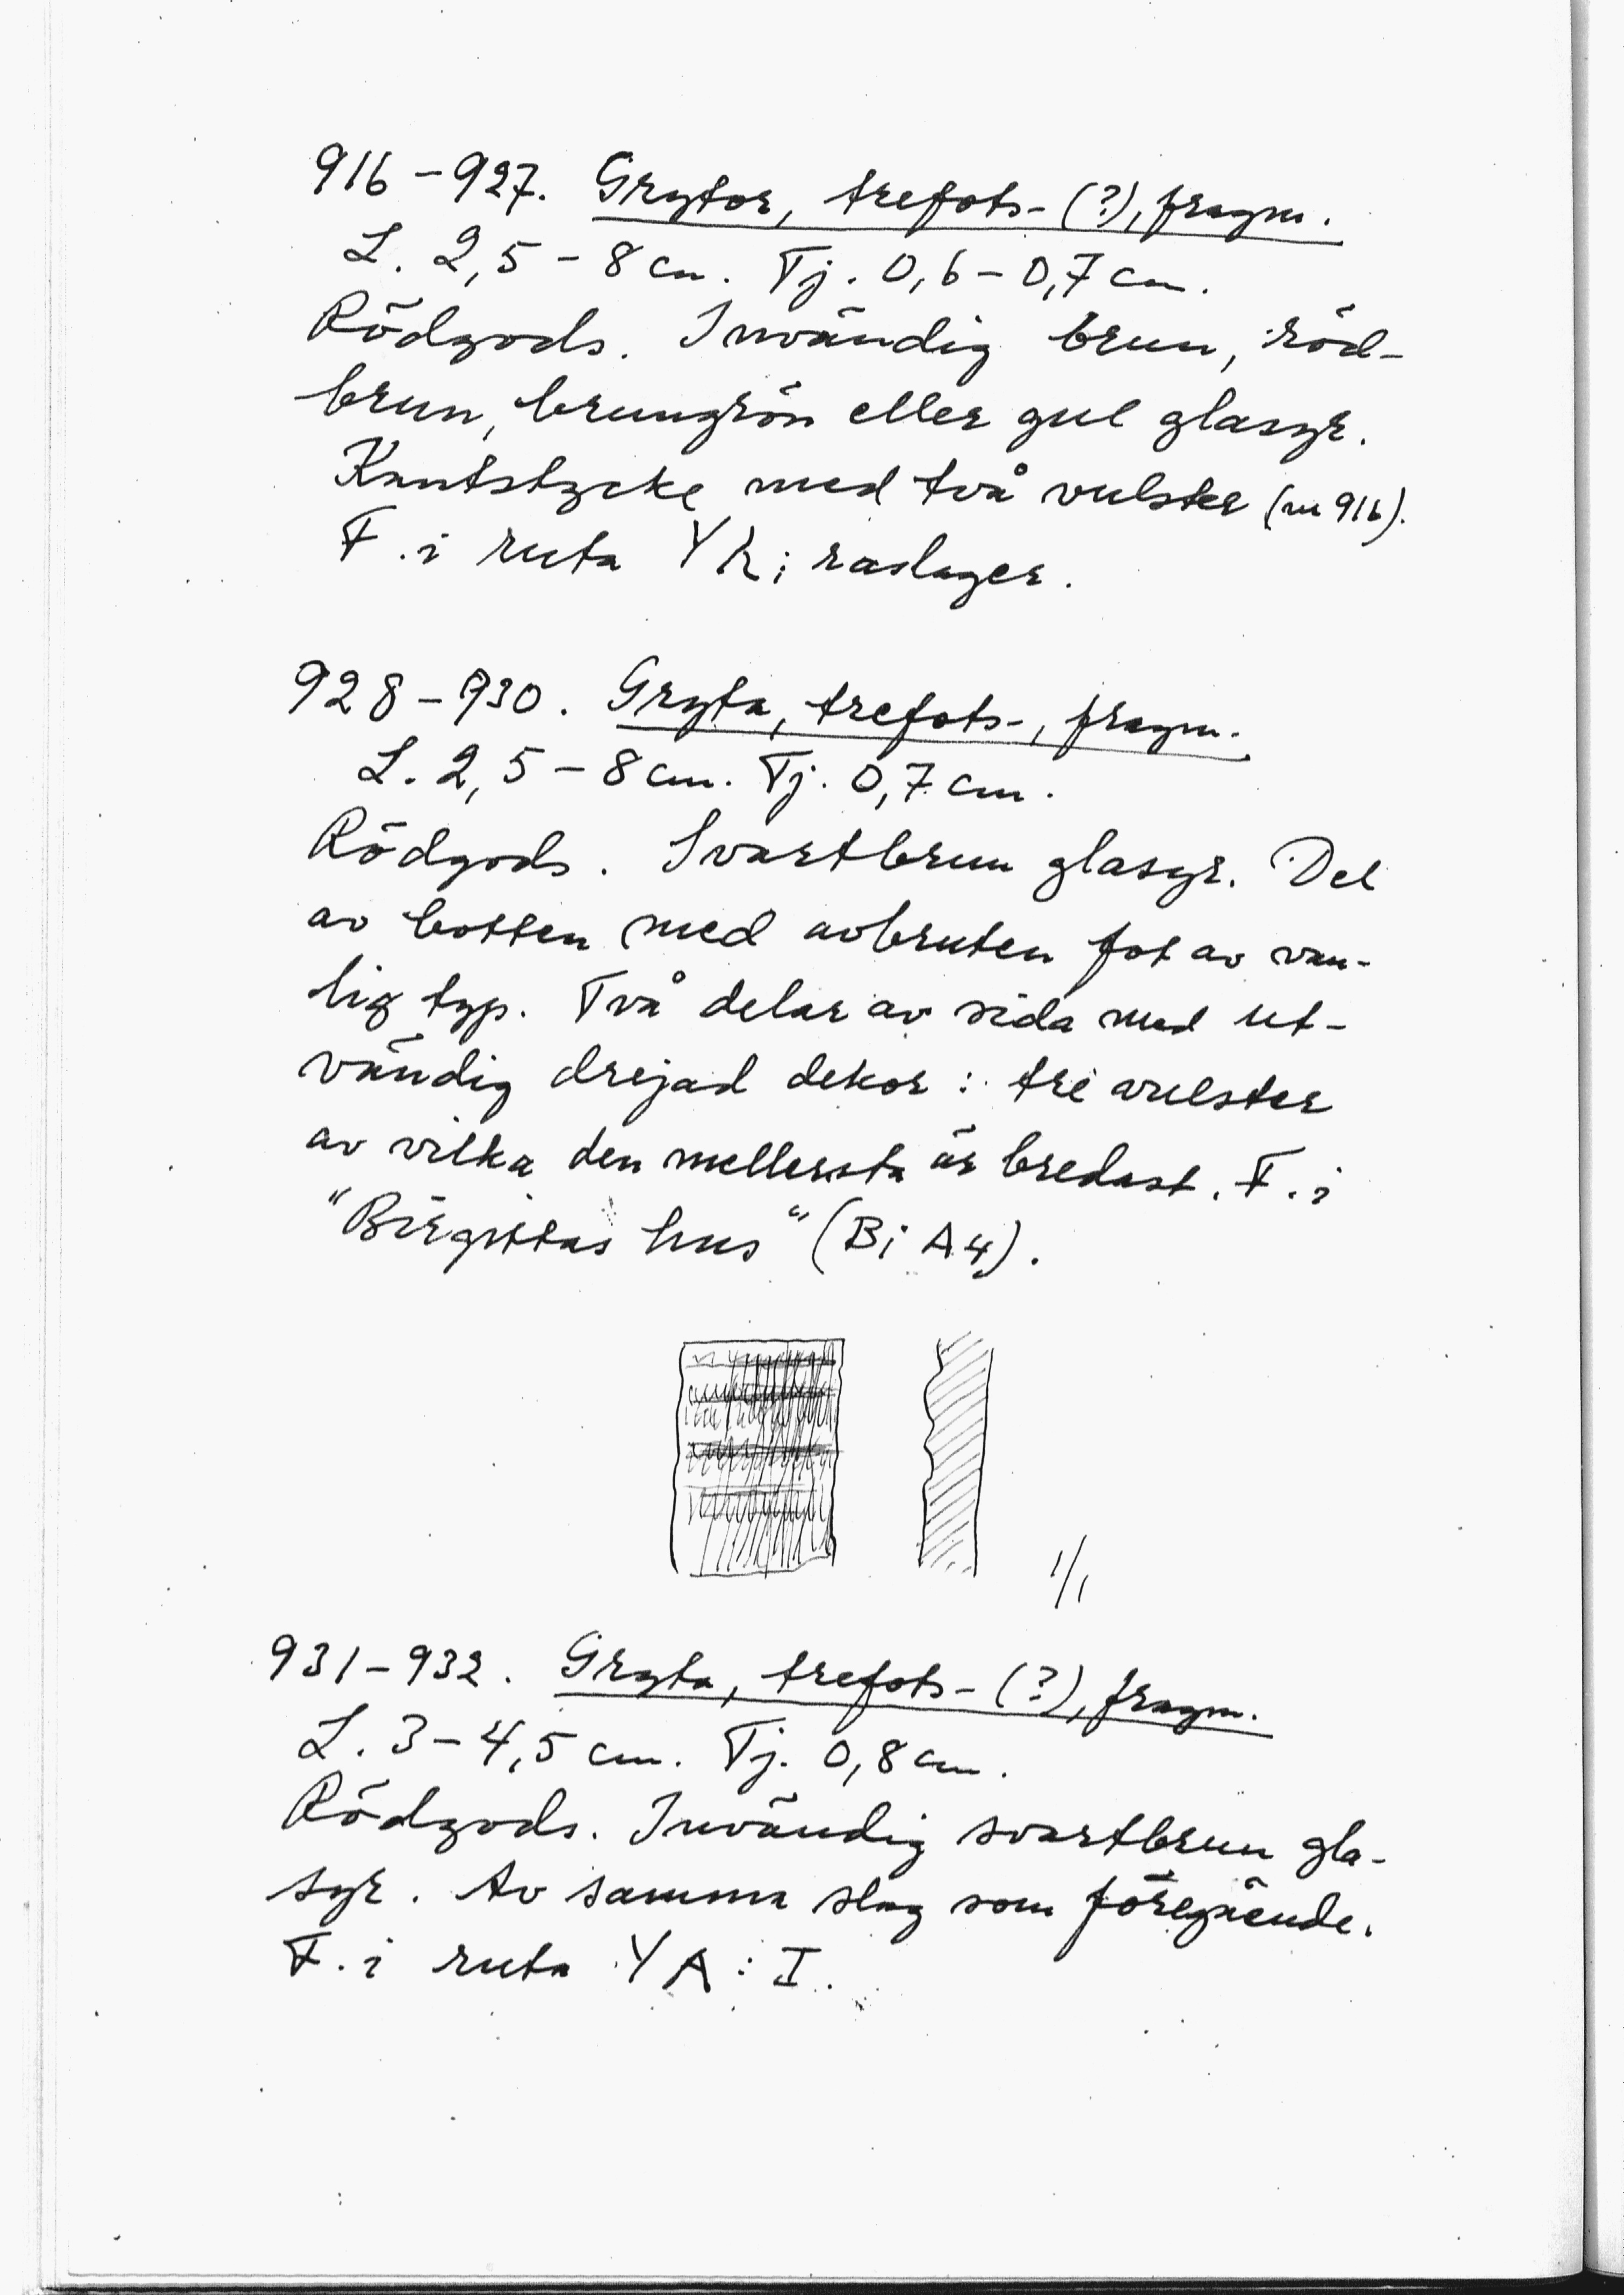 916–927. Grytor, trefots- (?), fragm.
L. 2,5 – 8 cm. Tj. 0,6 – 0,7 cm.
Rödgods. Invändig brun, röd-
brun, brungrön eller gul glasyr.
Kantstycke med två vulster (nr 916).
F. i ruta YK; raslager.
928–930. Gryta, trefots-, fragm.
L. 2,5 – 8 cm. Tj. 0,7 cm.
Rödgods. Svartbrun glasyr. Del
av botten med avbruten fot av van-
lig typ. Två delar av sida med ut-
vändig drejad dekor: tre vulster
av vilka den mellersta är bredast. F. i
"Birgittas hus" (Bi A4).
1/1
931–932. Gryta, trefots- (?), fragm.
L. 3 – 4,5 cm. Tj. 0,8 cm.
Rödgods. Invändig svartbrun gla-
syr. Av samma slag som föregående.
F. i ruta YA: I.